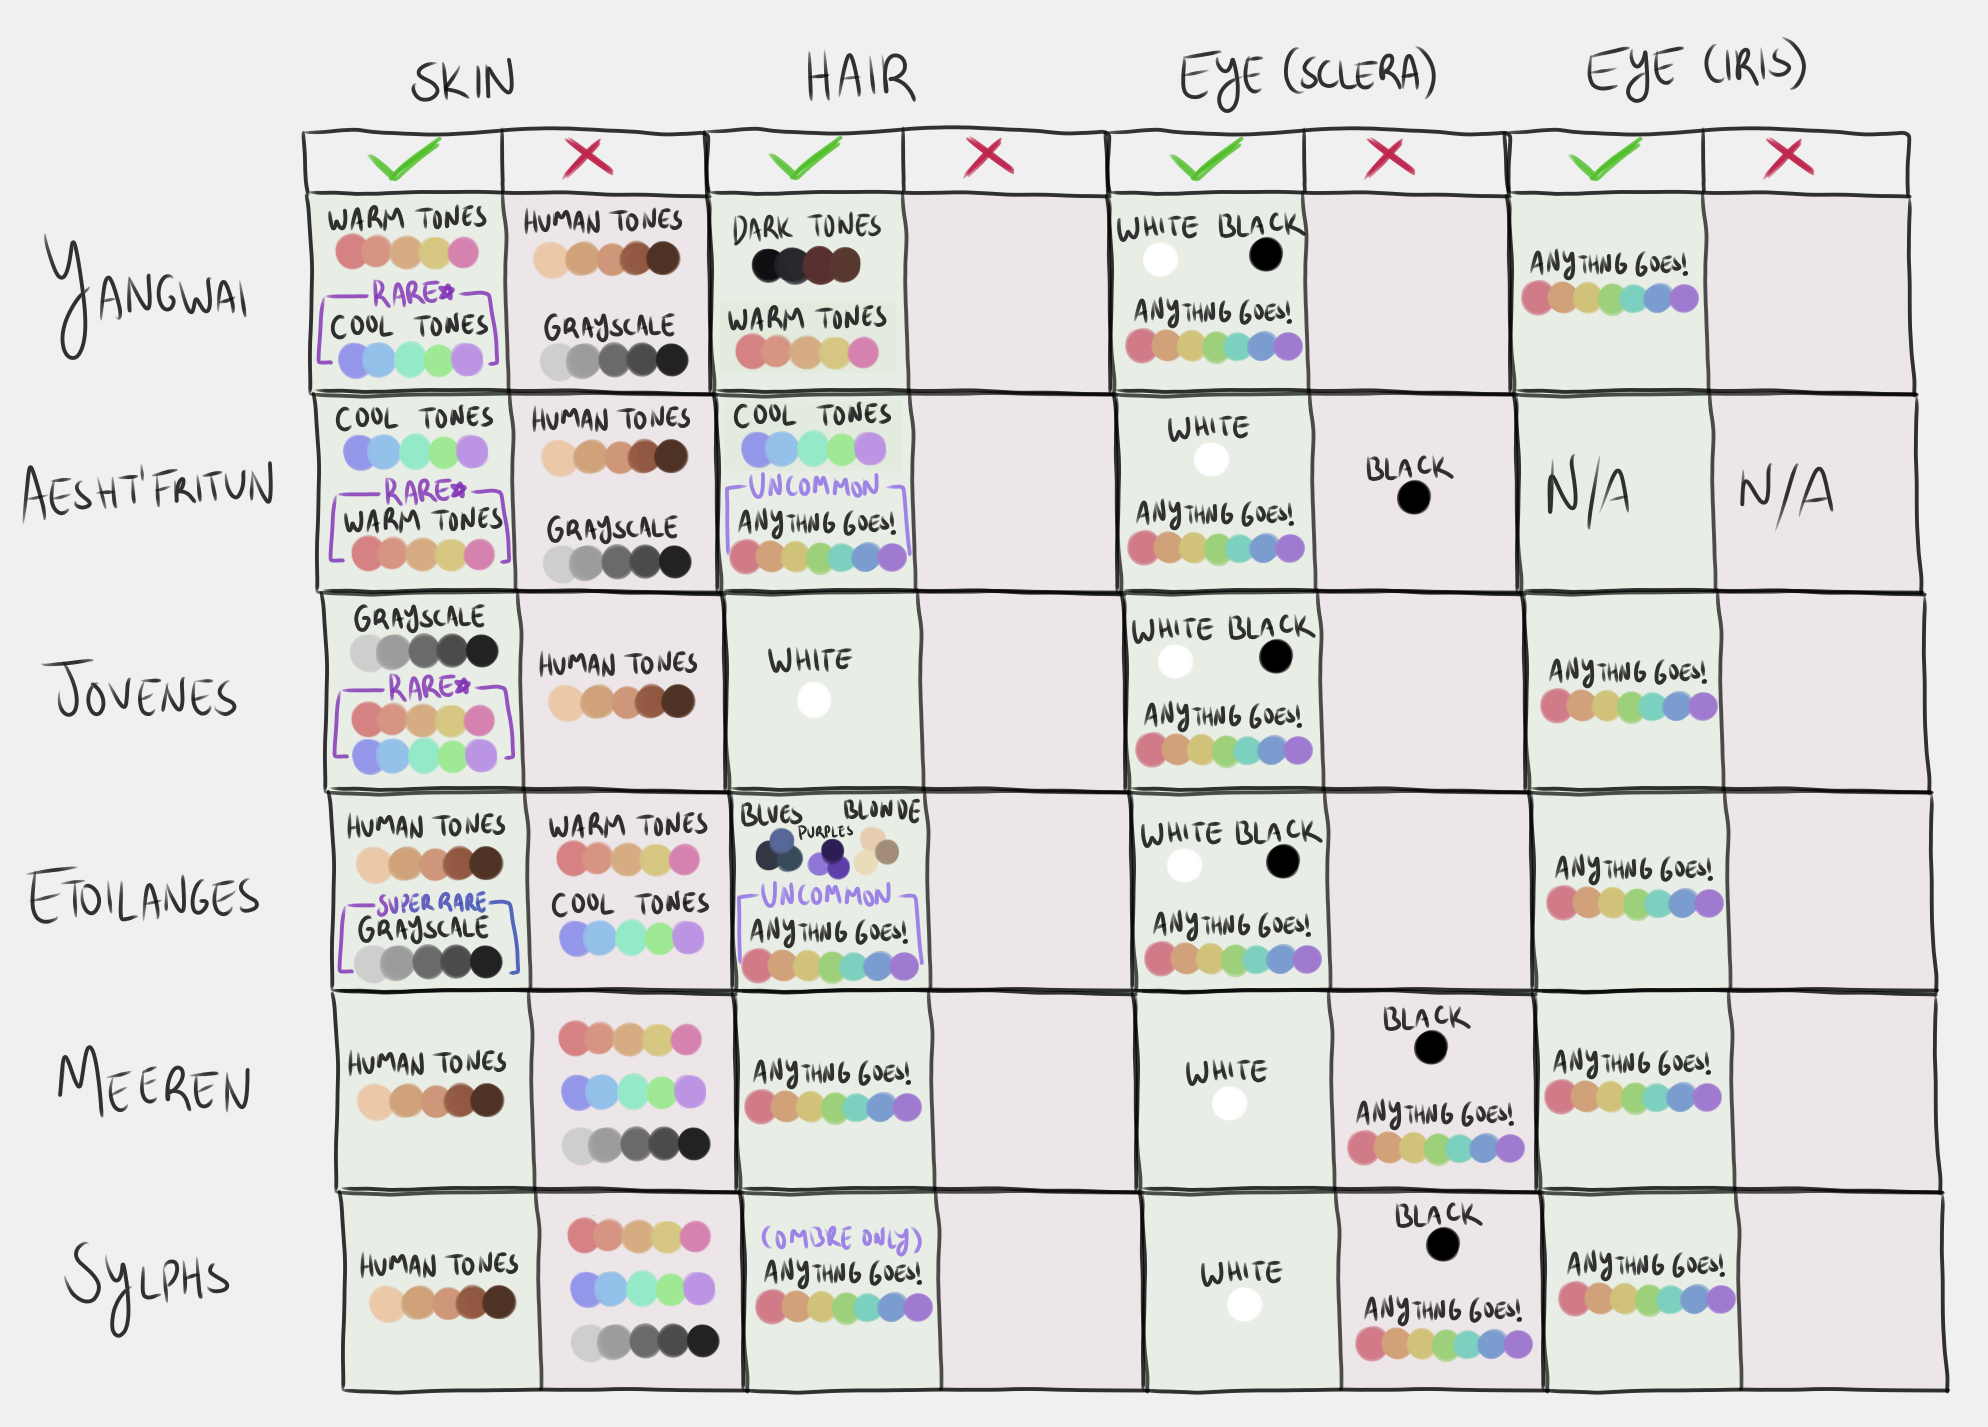 SKIN HAIR EYE (SCLERA) EYE (IRIS)
YANGWAI
WARM TONES
RARE*
COOL TONES
HUMAN TONES
GRAYSCALE
DARK TONES
WARM TONES
WHITE BLACK
ANYTHNG GOES!
ANYTHNG GOES!
AESHT'FRITUN
COOL TONES
RARE*
WARM TONES
HUMAN TONES
GRAYSCALE
COOL TONES
UNCOMMON
ANYTHNG GOES!
WHITE
ANYTHNG GOES!
BLACK
N/A
N/A
JOVENES
GRAYSCALE
RARE*
HUMAN TONES
WHITE
WHITE BLACK
ANYTHNG GOES!
ANYTHNG GOES!
ETOILANGES
HUMAN TONES
SUPER RARE
GRAYSCALE
WARM TONES
COOL TONES
BLUES PURPLES BLONDE
UNCOMMON
ANYTHNG GOES!
WHITE BLACK
ANYTHNG GOES!
ANYTHNG GOES!
MEEREN
HUMAN TONES
ANYTHNG GOES!
WHITE
BLACK
ANYTHNG GOES!
ANYTHNG GOES!
SYLPHS
HUMAN TONES
(OMBRE ONLY)
ANYTHNG GOES!
WHITE
BLACK
ANYTHNG GOES!
ANYTHNG GOES!